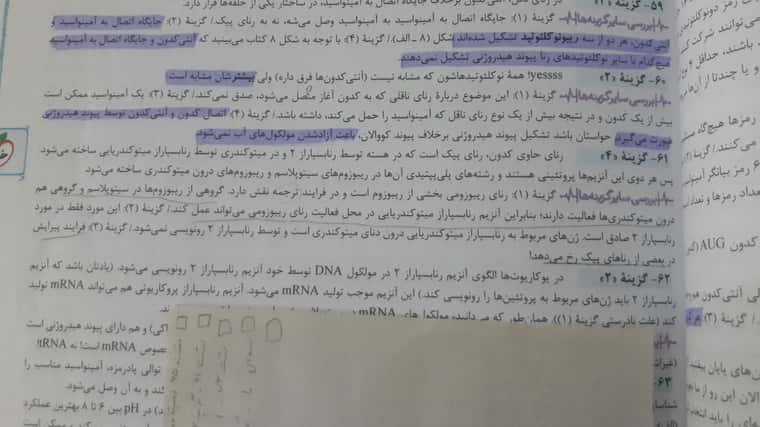 ۵۹- گزینهٔ «۴»
بررسی سایر گزینه‌ها: گزینهٔ (۱): جایگاه اتصال به آمینواسید به آمینواسید وصل می‌شه، نه به رنای پیک./ گزینهٔ (۲): جایگاه اتصال به آمینواسید و
آنتی‌کدون، هر دو از سه ریبونوکلئوتید تشکیل شده‌اند. شکل (۸ ـ الف)./ گزینهٔ (۴): با توجه به شکل ۸ کتاب می‌بینید که آنتی‌کدون و جایگاه اتصال به آمینواسید
هیچ‌کدام با سایر نوکلئوتیدهای رنا پیوند هیدروژنی تشکیل نمی‌دهند.
۶۰- گزینهٔ «۲» yessss! همهٔ نوکلئوتیدهاشون که مشابه نیست (آنتی‌کدون‌ها فرق داره) ولی بیشترشان مشابه است.
بررسی سایر گزینه‌ها: گزینهٔ (۱): این موضوع دربارهٔ رنای ناقلی که به کدون آغاز متصل می‌شود، صدق نمی‌کند./ گزینهٔ (۳): یک آمینواسید ممکن است
بیش از یک کدون و در نتیجه بیش از یک نوع رنای ناقل که آمینواسید را حمل می‌کند، داشته باشد./ گزینهٔ (۴): اتصال کدون و آنتی‌کدون توسط پیوند هیدروژنی
صورت می‌گیرد. حواستان باشد تشکیل پیوند هیدروژنی برخلاف پیوند کووالان، باعث آزادشدن مولکول‌های آب نمی‌شود.
۶۱- گزینهٔ «۴» رنای حاوی کدون، رنای پیک است که در هسته توسط رنابسپاراز ۲ و در میتوکندری توسط رنابسپاراز میتوکندریایی ساخته می‌شود
پس هر دوی این آنزیم‌ها پروتئینی هستند و رشته‌های پلی‌پپتیدی آن‌ها در ریبوزوم‌های سیتوپلاسم و ریبوزوم‌های درون میتوکندری ساخته می‌شود
بررسی سایر گزینه‌ها: گزینهٔ (۱): رنای ریبوزومی بخشی از ریبوزوم است و در فرایند ترجمه نقش دارد. گروهی از ریبوزوم‌ها در سیتوپلاسم و گروهی هم
درون میتوکندری‌ها فعالیت دارند؛ بنابراین آنزیم رنابسپاراز میتوکندریایی در محل فعالیت رنای ریبوزومی می‌تواند عمل کند./ گزینهٔ (۲): این مورد فقط در مورد
رنابسپاراز ۲ صادق است. ژن‌های مربوط به رنابسپاراز میتوکندریایی درون دنای میتوکندری است و توسط رنابسپاراز ۲ رونویسی نمی‌شود./ گزینهٔ (۳): فرایند پیرایش
در بعضی از رناهای پیک رخ می‌دهد!
۶۲- گزینهٔ «۲» در یوکاریوت‌ها الگوی آنزیم رنابسپاراز ۲ در مولکول DNA توسط خود آنزیم رنابسپاراز ۲ رونویسی می‌شود. (یادتان باشد که آنزیم
رنابسپاراز ۲ باید ژن‌های مربوط به پروتئین‌ها را رونویسی کند.) این آنزیم موجب تولید mRNA می‌شود. آنزیم رنابسپاراز پروکاریوتی هم می‌تواند mRNA تولید
کند (علت نادرستی گزینهٔ (۱)). همان‌طور که می‌دانید، مولکول‌های mRNA
و هم دارای پیوند هیدروژنی است
خصوص mRNA است! نه tRNA
توالی پادرمزه، آمینواسید مناسب را
کند و به آن وصل می‌شود.
در pH بین ۶ تا ۸ بهترین عملکرد
۶۳-
کدون AUG